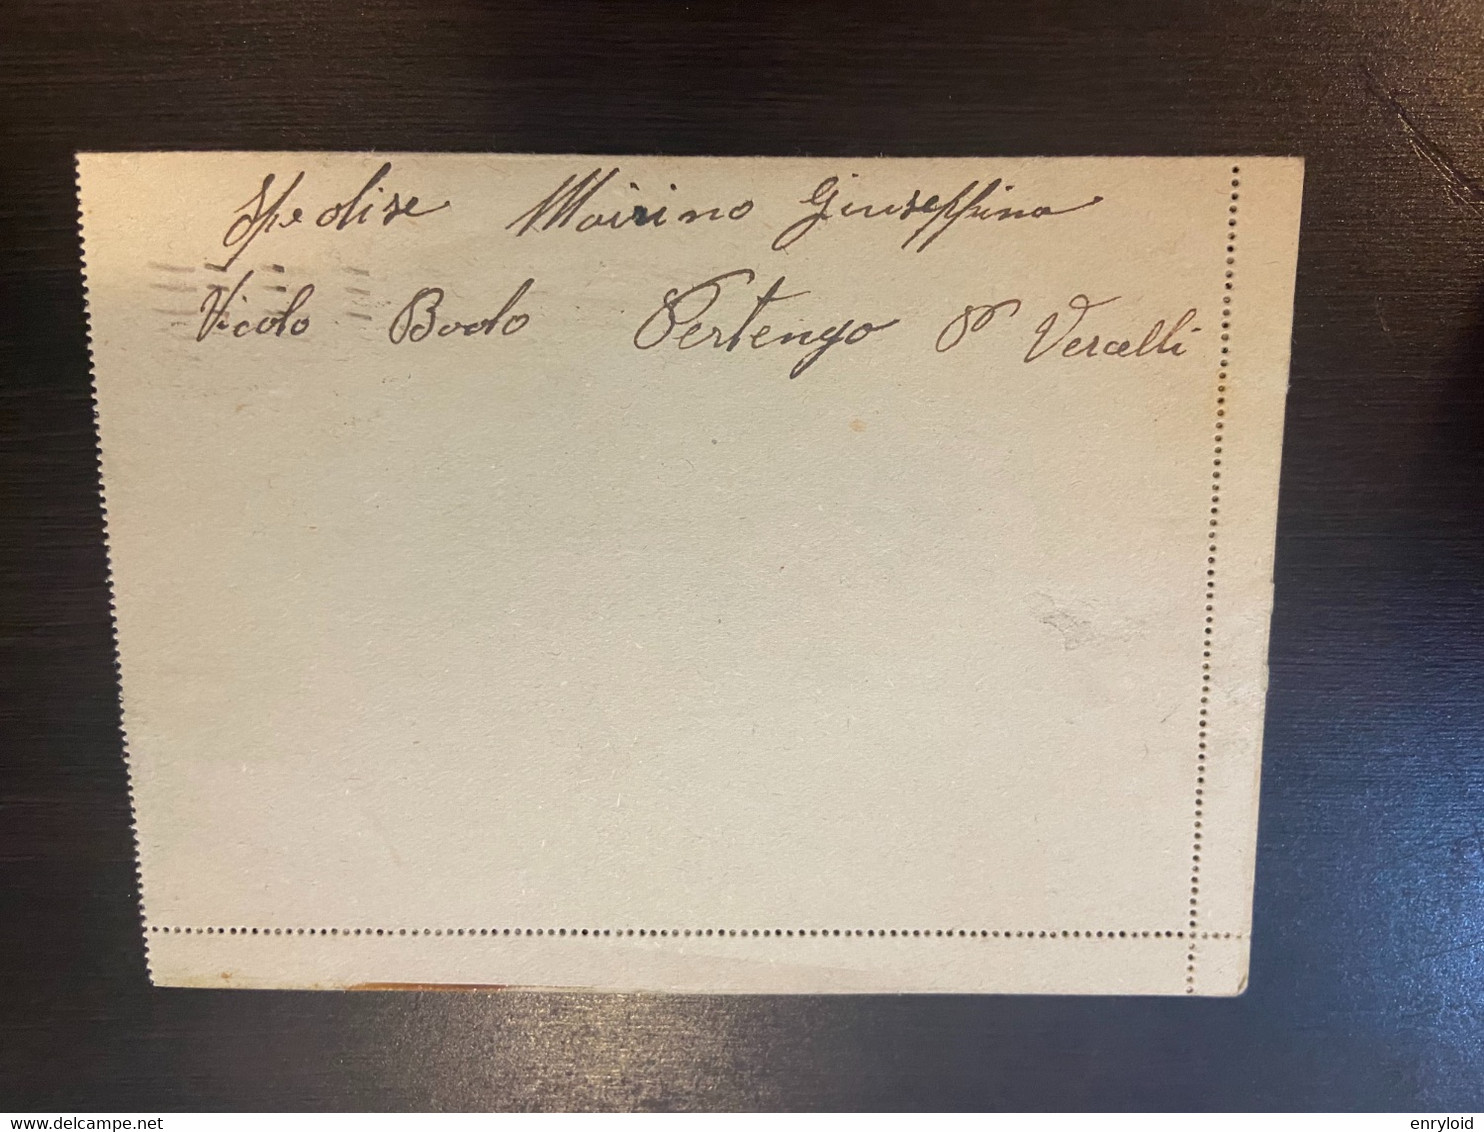 Spedise Mairino Giuseffina
Vicolo Bodo Pertengo P Vercelli
delcampe.net
enryloid